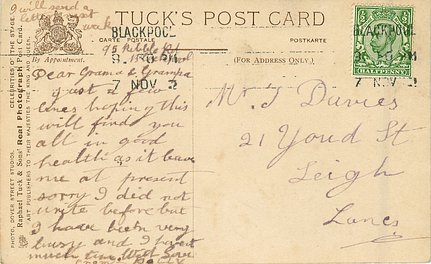 I will send a
letter next
week
TUCK'S POST CARD
CARTE POSTALE
POSTKARTE
By Appointment.
(FOR ADDRESS ONLY.)
BLACKPOOL
7 NOV 12
BLACKPOOL
7 NOV 12
HALFPENNY
PHOTO. DOVER STREET STUDIOS. CELEBRITIES OF THE STAGE
Raphael Tuck & Sons' Real Photograph Post Card.
ART PUBLISHERS TO THEIR MAJESTIES THE KING AND QUEEN
95
Dear Grama & Granpa
Just a few
lines hoping this
will find you
all in good
health as it leaves
me at present
sorry I did not
write before but
I have been very
busy and I havent
much time with
Mr J Davies
21 Youd St
Leigh
Lancs